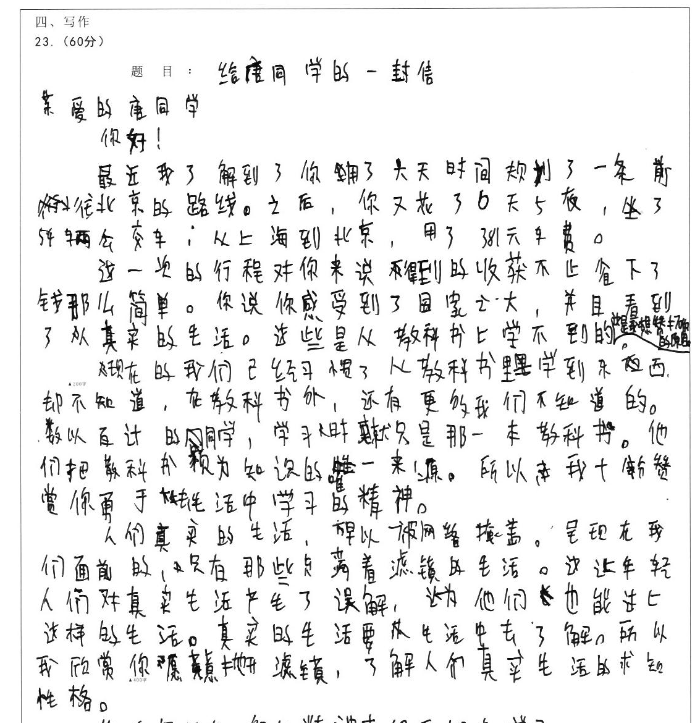 四、写作
23.（60分）
题 目： 给唐同学的一封信
亲爱的唐同学
你好！
最近我了解到了你用了六天时间规划了一条前
往北京的路线。之后，你又花了6天5夜，坐了
54辆公交车；从上海到北京，用了381元车费。
这一次的行程对你来说得到的收获不止省下了
钱那么简单。你说你感受到了国家之大，并且看到
了人真实的生活。这些是从教科书上学不到的。
现在的我们已经习惯了从教科书里学到东西
却不知道，在教科书外，还有更多我们不知道的。
数以百计的同学，学习时只是那一本教科书。他
们把教科书视为知识的唯一来源。所以我十分赞
赏你勇于去生活中学习的精神。
人们真实的生活，得以被网络掩盖。呈现在我
们面前的，只有那些点满着滤镜的生活。这让年轻
人们对真实生活产生了误解，以为他们也能过上
这样的生活。真实的生活要从生活中去了解。所以
我欣赏你愿意抛开滤镜，了解人们真实生活的求知
性格。